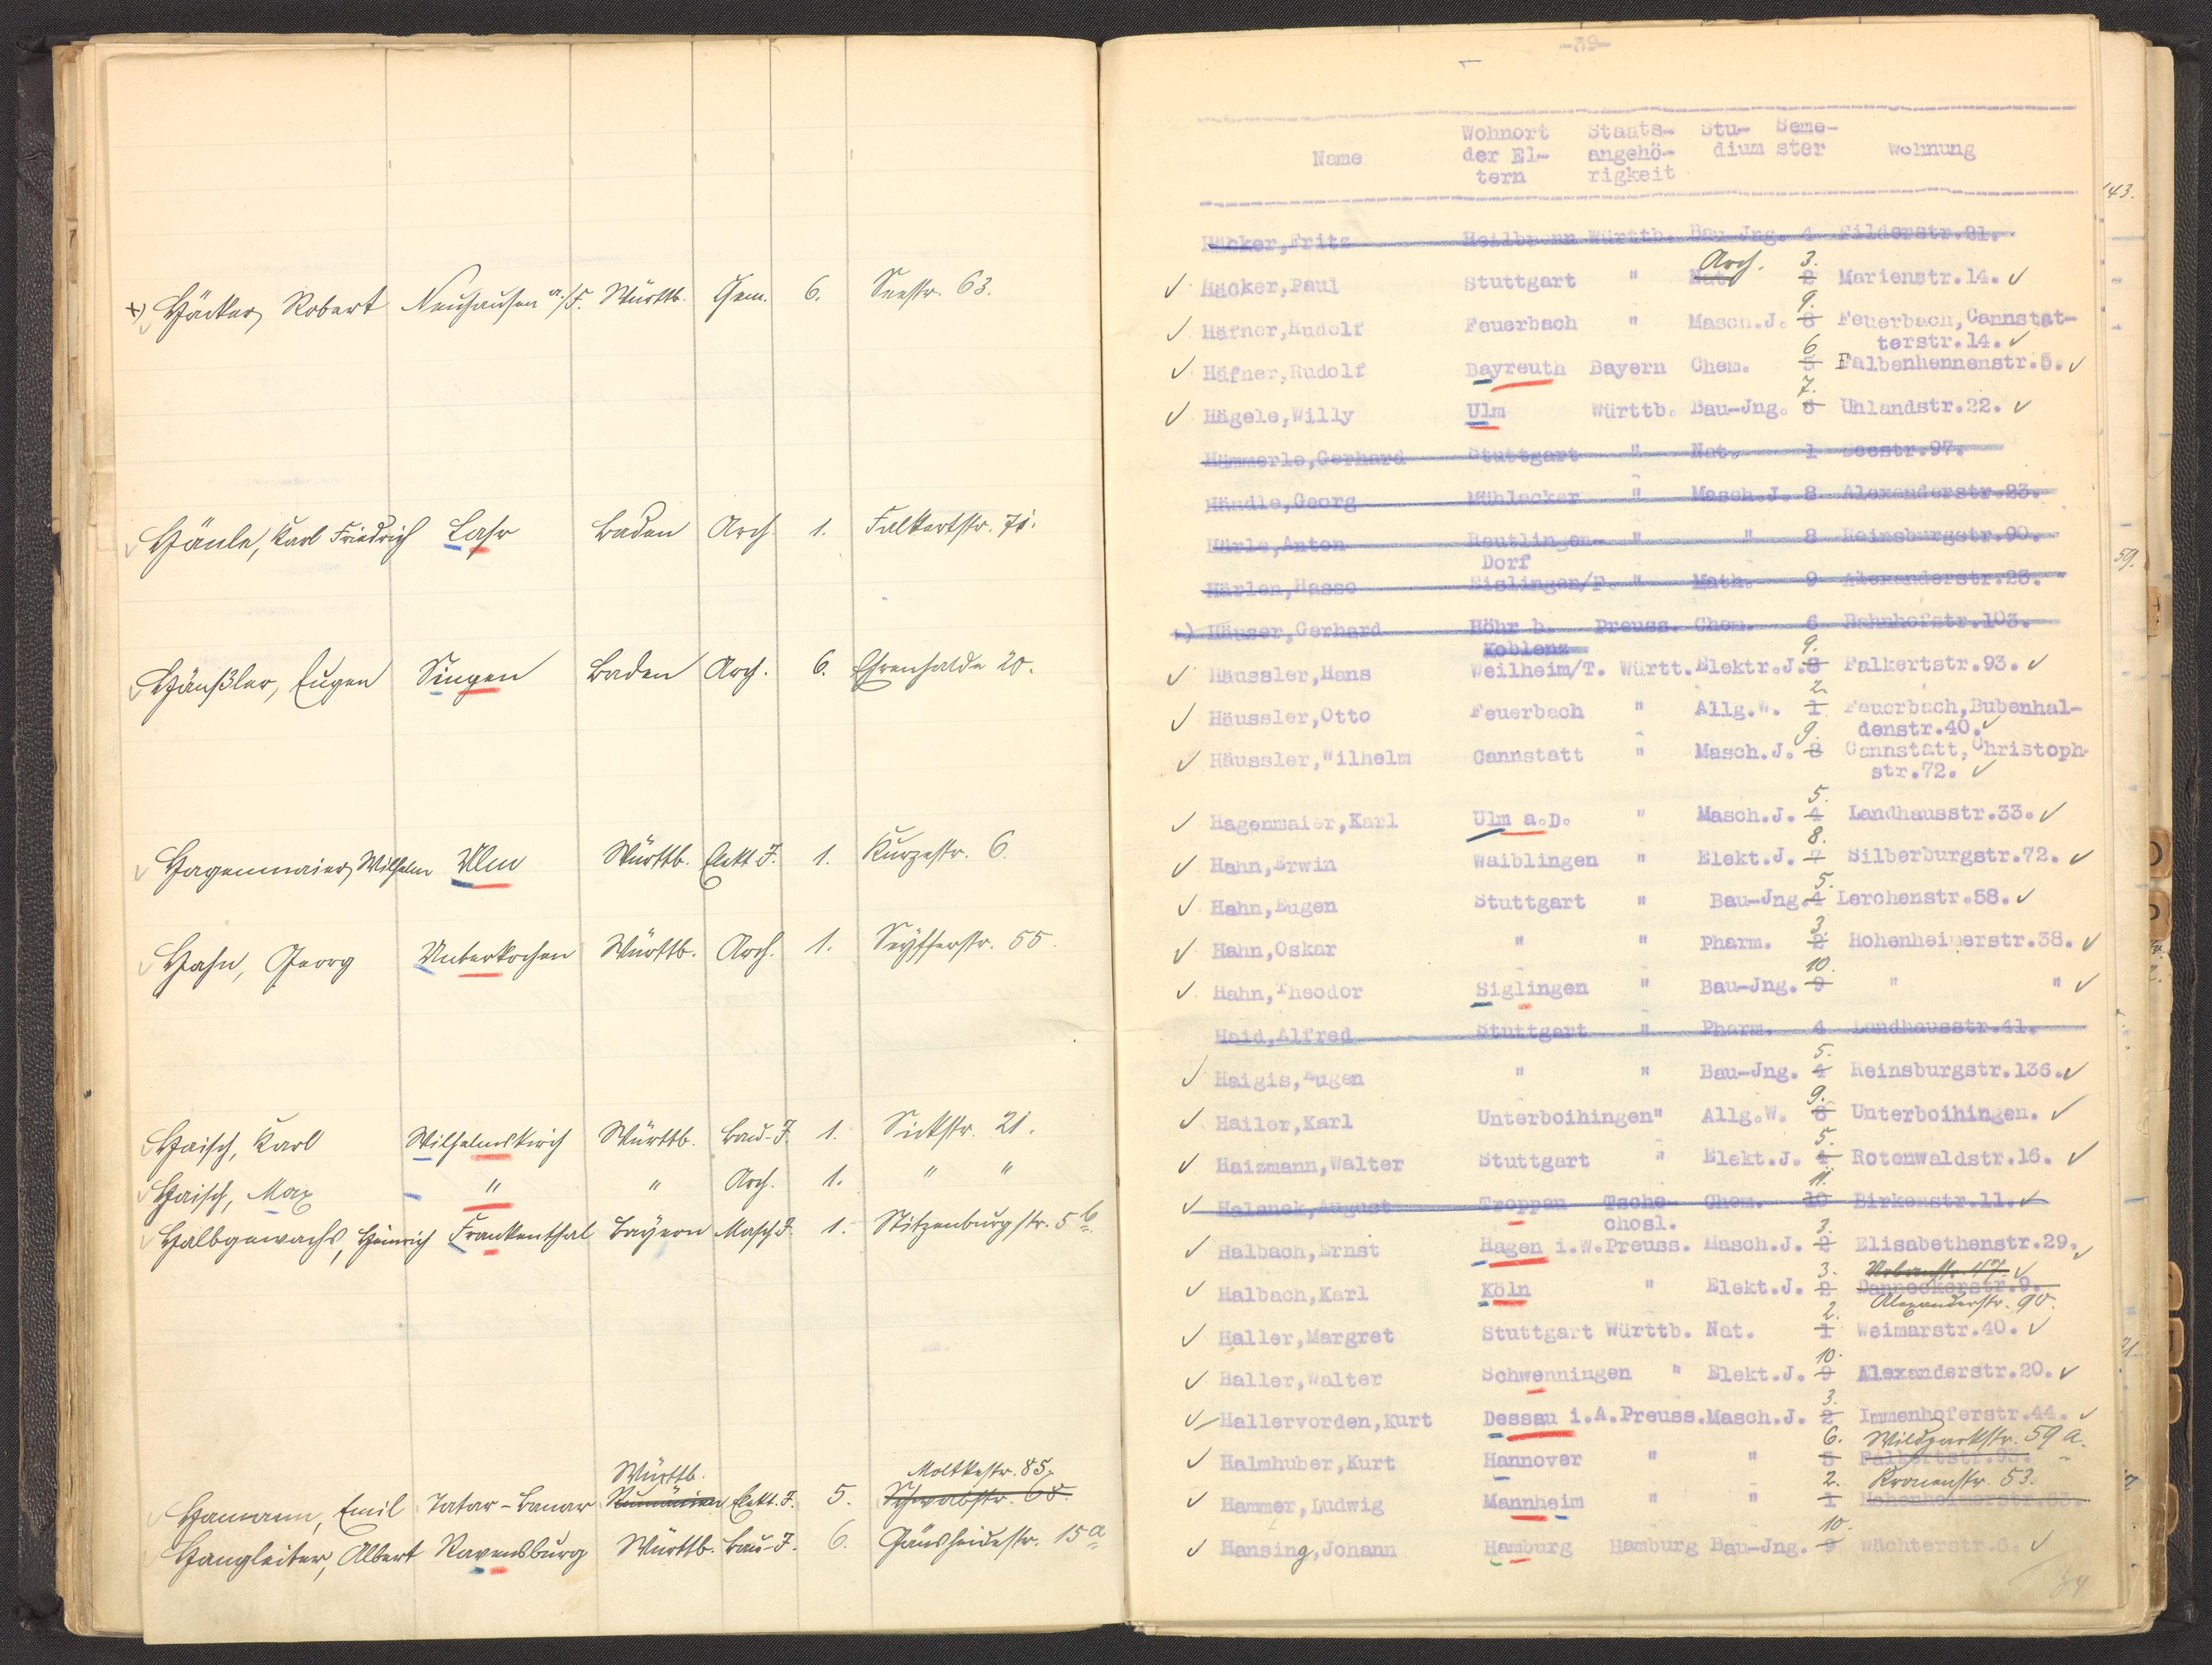 x) Häcker, Robert Neuhausen a./F. Württb. Gem. 6. Seestr. 63.
Hänle, Karl Friedrich Lahr Baden Arch. 1. Falkertstr. 71.
Häußler, Eugen Singen Baden Arch. 6. Ehrenhalde 20.
Hagenmaier, Wilhelm Ulm Württb. Elekt. J. 1. Kurzestr. 6.
Hahn, Georg Unterkochen Württb. Arch. 1. Seyfferstr. 55.
Haisch, Karl Wilhelmskirch Württb. Bau-J. 1. Sickstr. 21.
Haisch, Max " " Arch. 1. " "
Halbgewachs, Heinrich Frankenthal Bayern Masch. J. 1. Stitzenburgstr. 5 b
Württb. Moltkestr. 85.
Hamann, Emil Tatar-Banar Rumänien Elekt. J. 5. Schwabstr. 68.
Hangleiter, Albert Ravensburg Württb. Bau-J. 6. Gänsheidestr. 15 a
-39-
Wohnort Staats- Stu- Seme-
Name der El- angehö- dium ster Wohnung
tern rigkeit
Häcker,Fritz Heilbronn Württb. Bau-Jng. 4 Filderstr.21.
Arch. 3.
Häcker,Paul Stuttgart " Nat. 2 Marienstr.14.
9.
Häfner,Rudolf Feuerbach " Masch.J. 8 Feuerbach,Cannstat-
terstr.14.
6.
Häfner,Rudolf Bayreuth Bayern Chem. 5 Falbenhennenstr.5.
7.
Hägele,Willy Ulm Württb. Bau-Jng. 6 Uhlandstr.22.
Hämmerle,Gerhard Stuttgart " Nat. 1 Seestr.97.
Händle,Georg Mühlacker " Masch.J. 8 Alexanderstr.23.
Härle,Anton Reutlingen- " " 8 Reinsburgstr.90.
Dorf
Härlen,Hasso Eislingen/F. " Math. 9 Alexanderstr.28.
Häuser,Gerhard Höhr b. Preuss. Chem. 6 Bahnhofstr.103.
Koblenz
9.
Häussler,Hans Weilheim/T. Württ. Elektr.J. 8 Falkertstr.93.
2.
Häussler,Otto Feuerbach " Allg.W. 1 Feuerbach,Bubenhal-
denstr.40.
9.
Häussler,Wilhelm Cannstatt " Masch.J. 8 Cannstatt,Christoph-
str.72.
5.
Hagenmaier,Karl Ulm a.D. " Masch.J. 4 Landhausstr.33.
8.
Hahn,Erwin Waiblingen " Elekt.J. 7 Silberburgstr.72.
5.
Hahn,Eugen Stuttgart " Bau-Jng. 4 Lerchenstr.58.
3.
Hahn,Oskar " " Pharm. 2 Hohenheimerstr.38.
10.
Hahn,Theodor Siglingen " Bau-Jng. 9 " "
Haid,Alfred Stuttgart " Pharm. 4 Landhausstr.41.
5.
Haigis,Eugen " " Bau-Jng. 4 Reinsburgstr.136.
9.
Hailer,Karl Unterboihingen" Allg.W. 8 Unterboihingen.
5.
Haizmann,Walter Stuttgart " Elekt.J. 4 Rotenwaldstr.16.
11.
Halanek,August Troppau Tsche- Chem. 10 Birkenstr.11.
chosl.
3.
Halbach,Ernst Hagen i.W. Preuss. Masch.J. 2 Elisabethenstr.29.
3. Urbanstr. 47.
Halbach,Karl Köln " Elekt.J. 2 Danneckerstr.9.
2. Alexanderstr. 90.
Haller,Margret Stuttgart Württb. Nat. 1 Weimarstr.40.
10.
Haller,Walter Schwenningen " Elekt.J. 9 Alexanderstr.20.
3.
Hallervorden,Kurt Dessau i.A. Preuss. Masch.J. 2 Immenhoferstr.44.
6. Wildparkstr. 59 a.
Halmhuber,Kurt Hannover " " 5 Falkertstr.93.
2. Kronenstr. 53.
Hammer,Ludwig Mannheim " " 1 Hohenheimerstr.63.
10.
Hansing,Johann Hamburg Hamburg Bau-Jng. 9 Wächterstr.6.